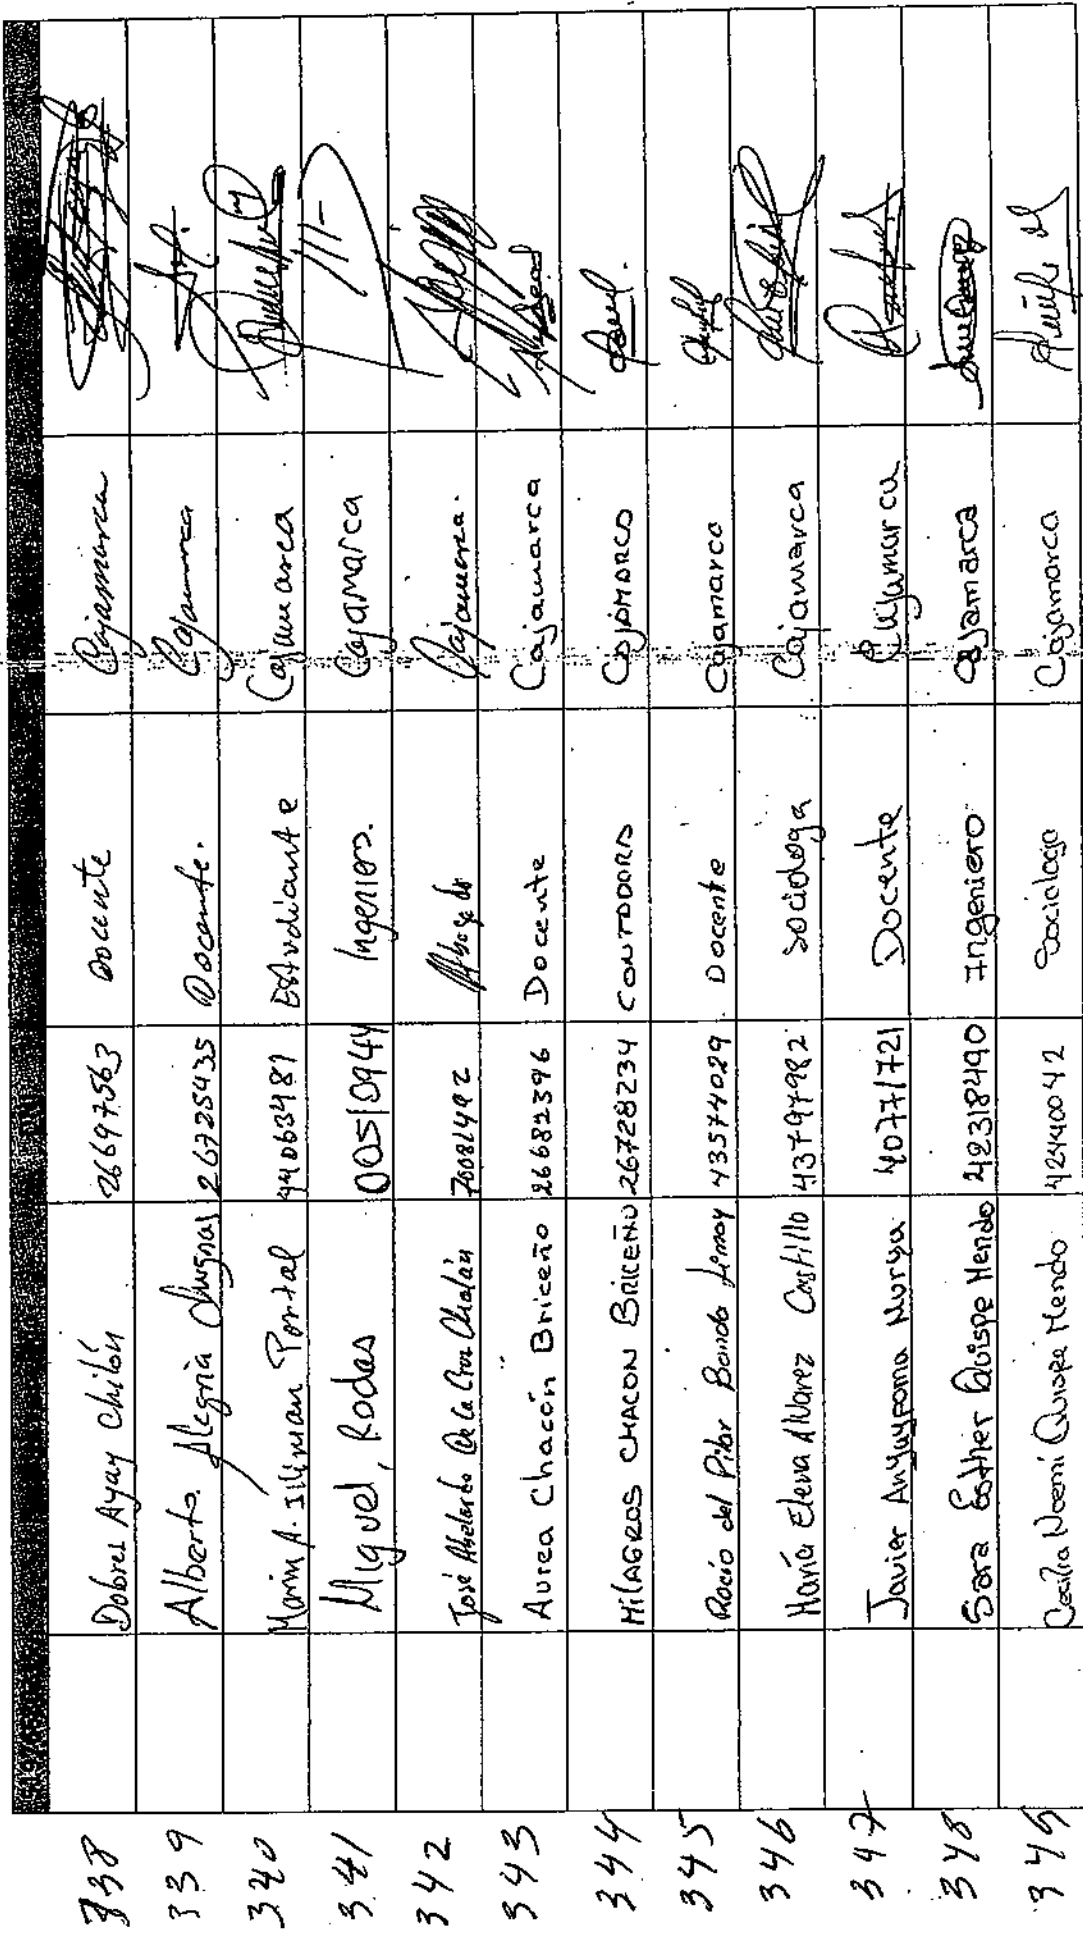 338 Dobres Ayay Chilón 26697563 Docente Cajamarca
339 Alberto Alegria 26725435 Docente. Cajamarca
340 Marin A. Illiman Portal 44063487 Estudiante Cajamarca
341 Miguel, Rodas 00510944 Ingeniero. Cajamarca
342 José Abelardo De la Cruz Chalán Abogado Cajamarca.
343 Aurea Chacón Briceño 26682396 Docente Cajamarca
344 MILAGROS CHACON BRICEÑO 26728234 CONTADORA CAJAMARCA
345 Rocío del Pilar 43574029 Docente Cajamarca
346 María Elena Alvarez Castillo 43797982 Sociologa Cajamarca
347 Javier Anyaypoma 40771721 Docente Cajamarca
348 Sara Esther Quispe Mendo 42318490 Ingeniero Cajamarca
349 Cecilia Noemí Quispe Mendo 42440042 Socióloga Cajamarca